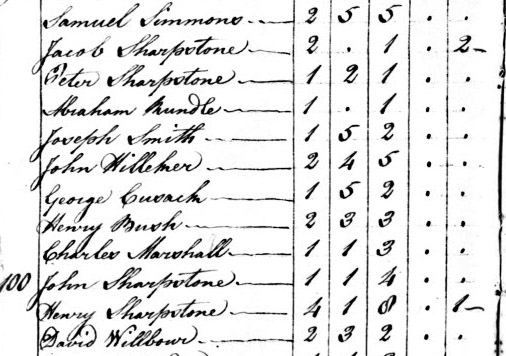 Samuel Simmons 2 5 5 . .
Jacob Sharpstone 2 . 1 . 2
Peter Sharpstone 1 2 1 . .
Abraham Rundle 1 . 1 . .
Joseph Smith 1 5 2 . .
John Hilleker 2 4 5 . .
George Cusack 1 5 2 . .
Henry Bush 2 3 3 . .
Charles Marshall 1 1 3 . .
100 John Sharpstone 1 1 4 . .
Henry Sharpstone 4 1 8 . 1
David Willbour 2 3 2 . .